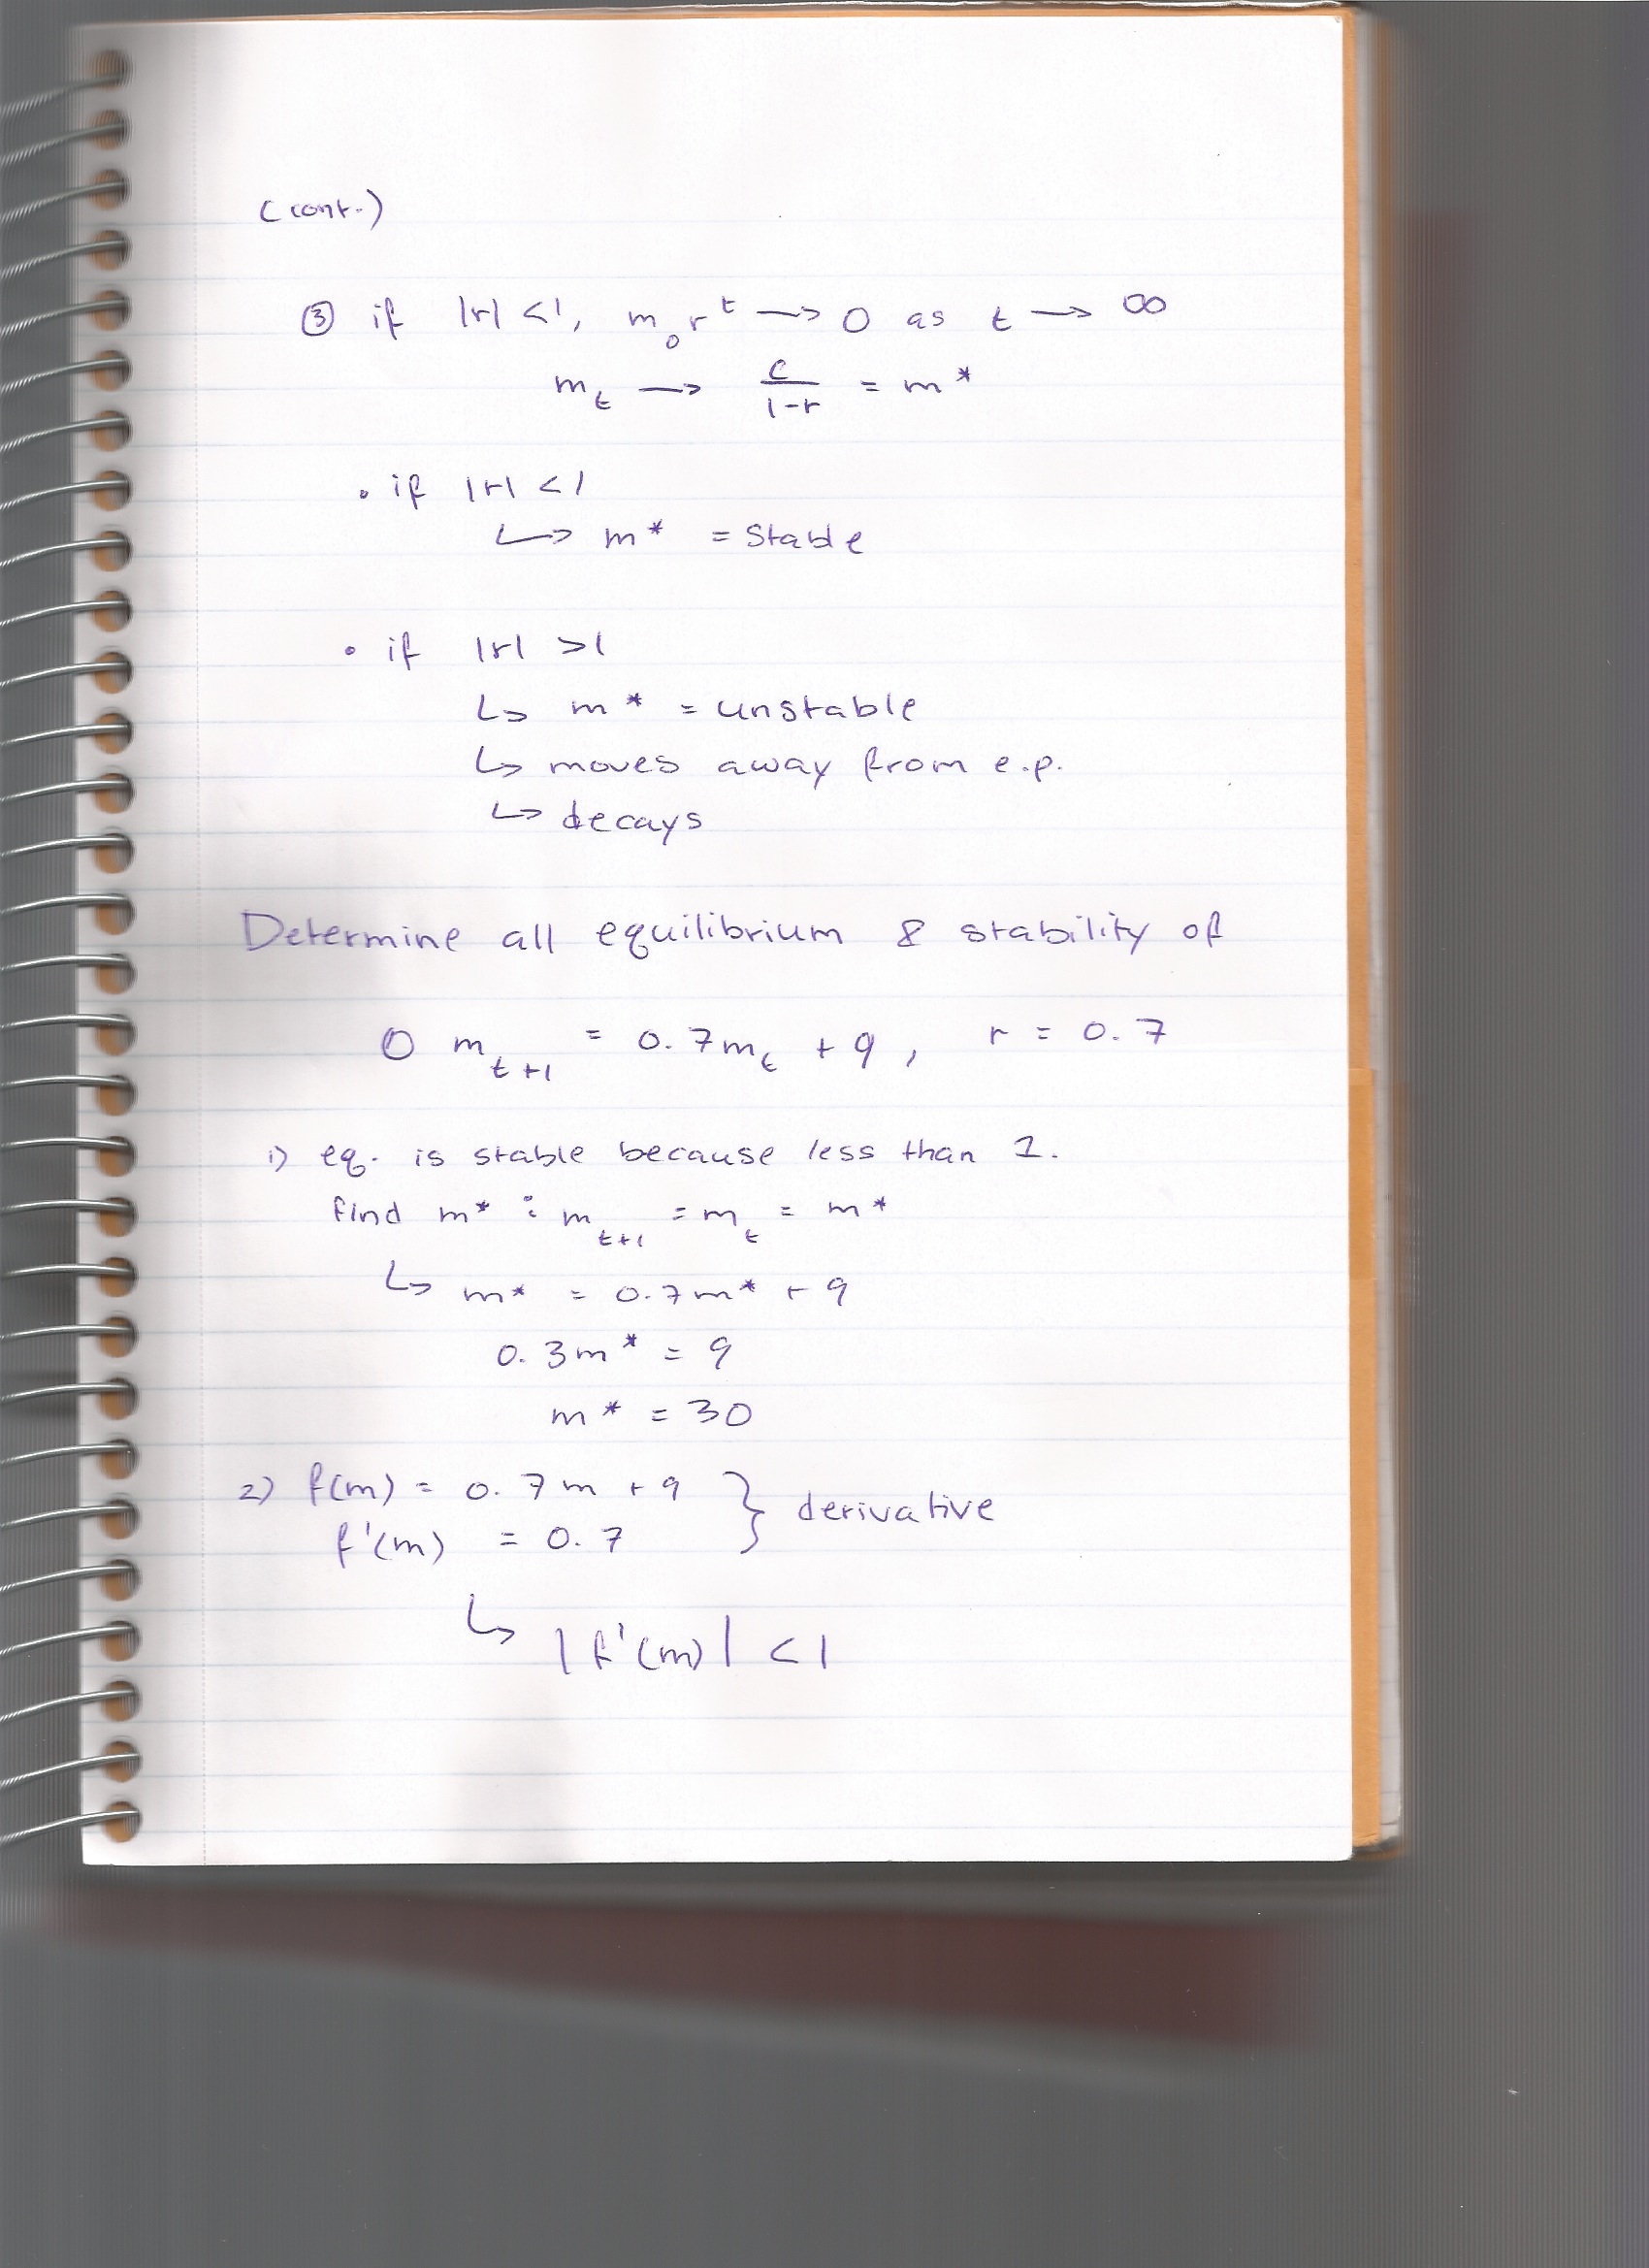 (cont.)
③ if |r| <1, m₀r^t → 0 as t → ∞
m_t → c/(1-r) = m*
• if |r| < 1
↳ m* = Stable
• if |r| >1
↳ m* = unstable
↳ moves away from e.p.
↳ decays
Determine all equilibrium & stability of
O m_{t+1} = 0.7m_t + 9, r = 0.7
1) eq. is stable because less than 1.
find m* : m_{t+1} = m_t = m*
↳ m* = 0.7m* + 9
0.3m* = 9
m* = 30
2) f(m) = 0.7m + 9 } derivative
f'(m) = 0.7
↳ |f'(m)| < 1